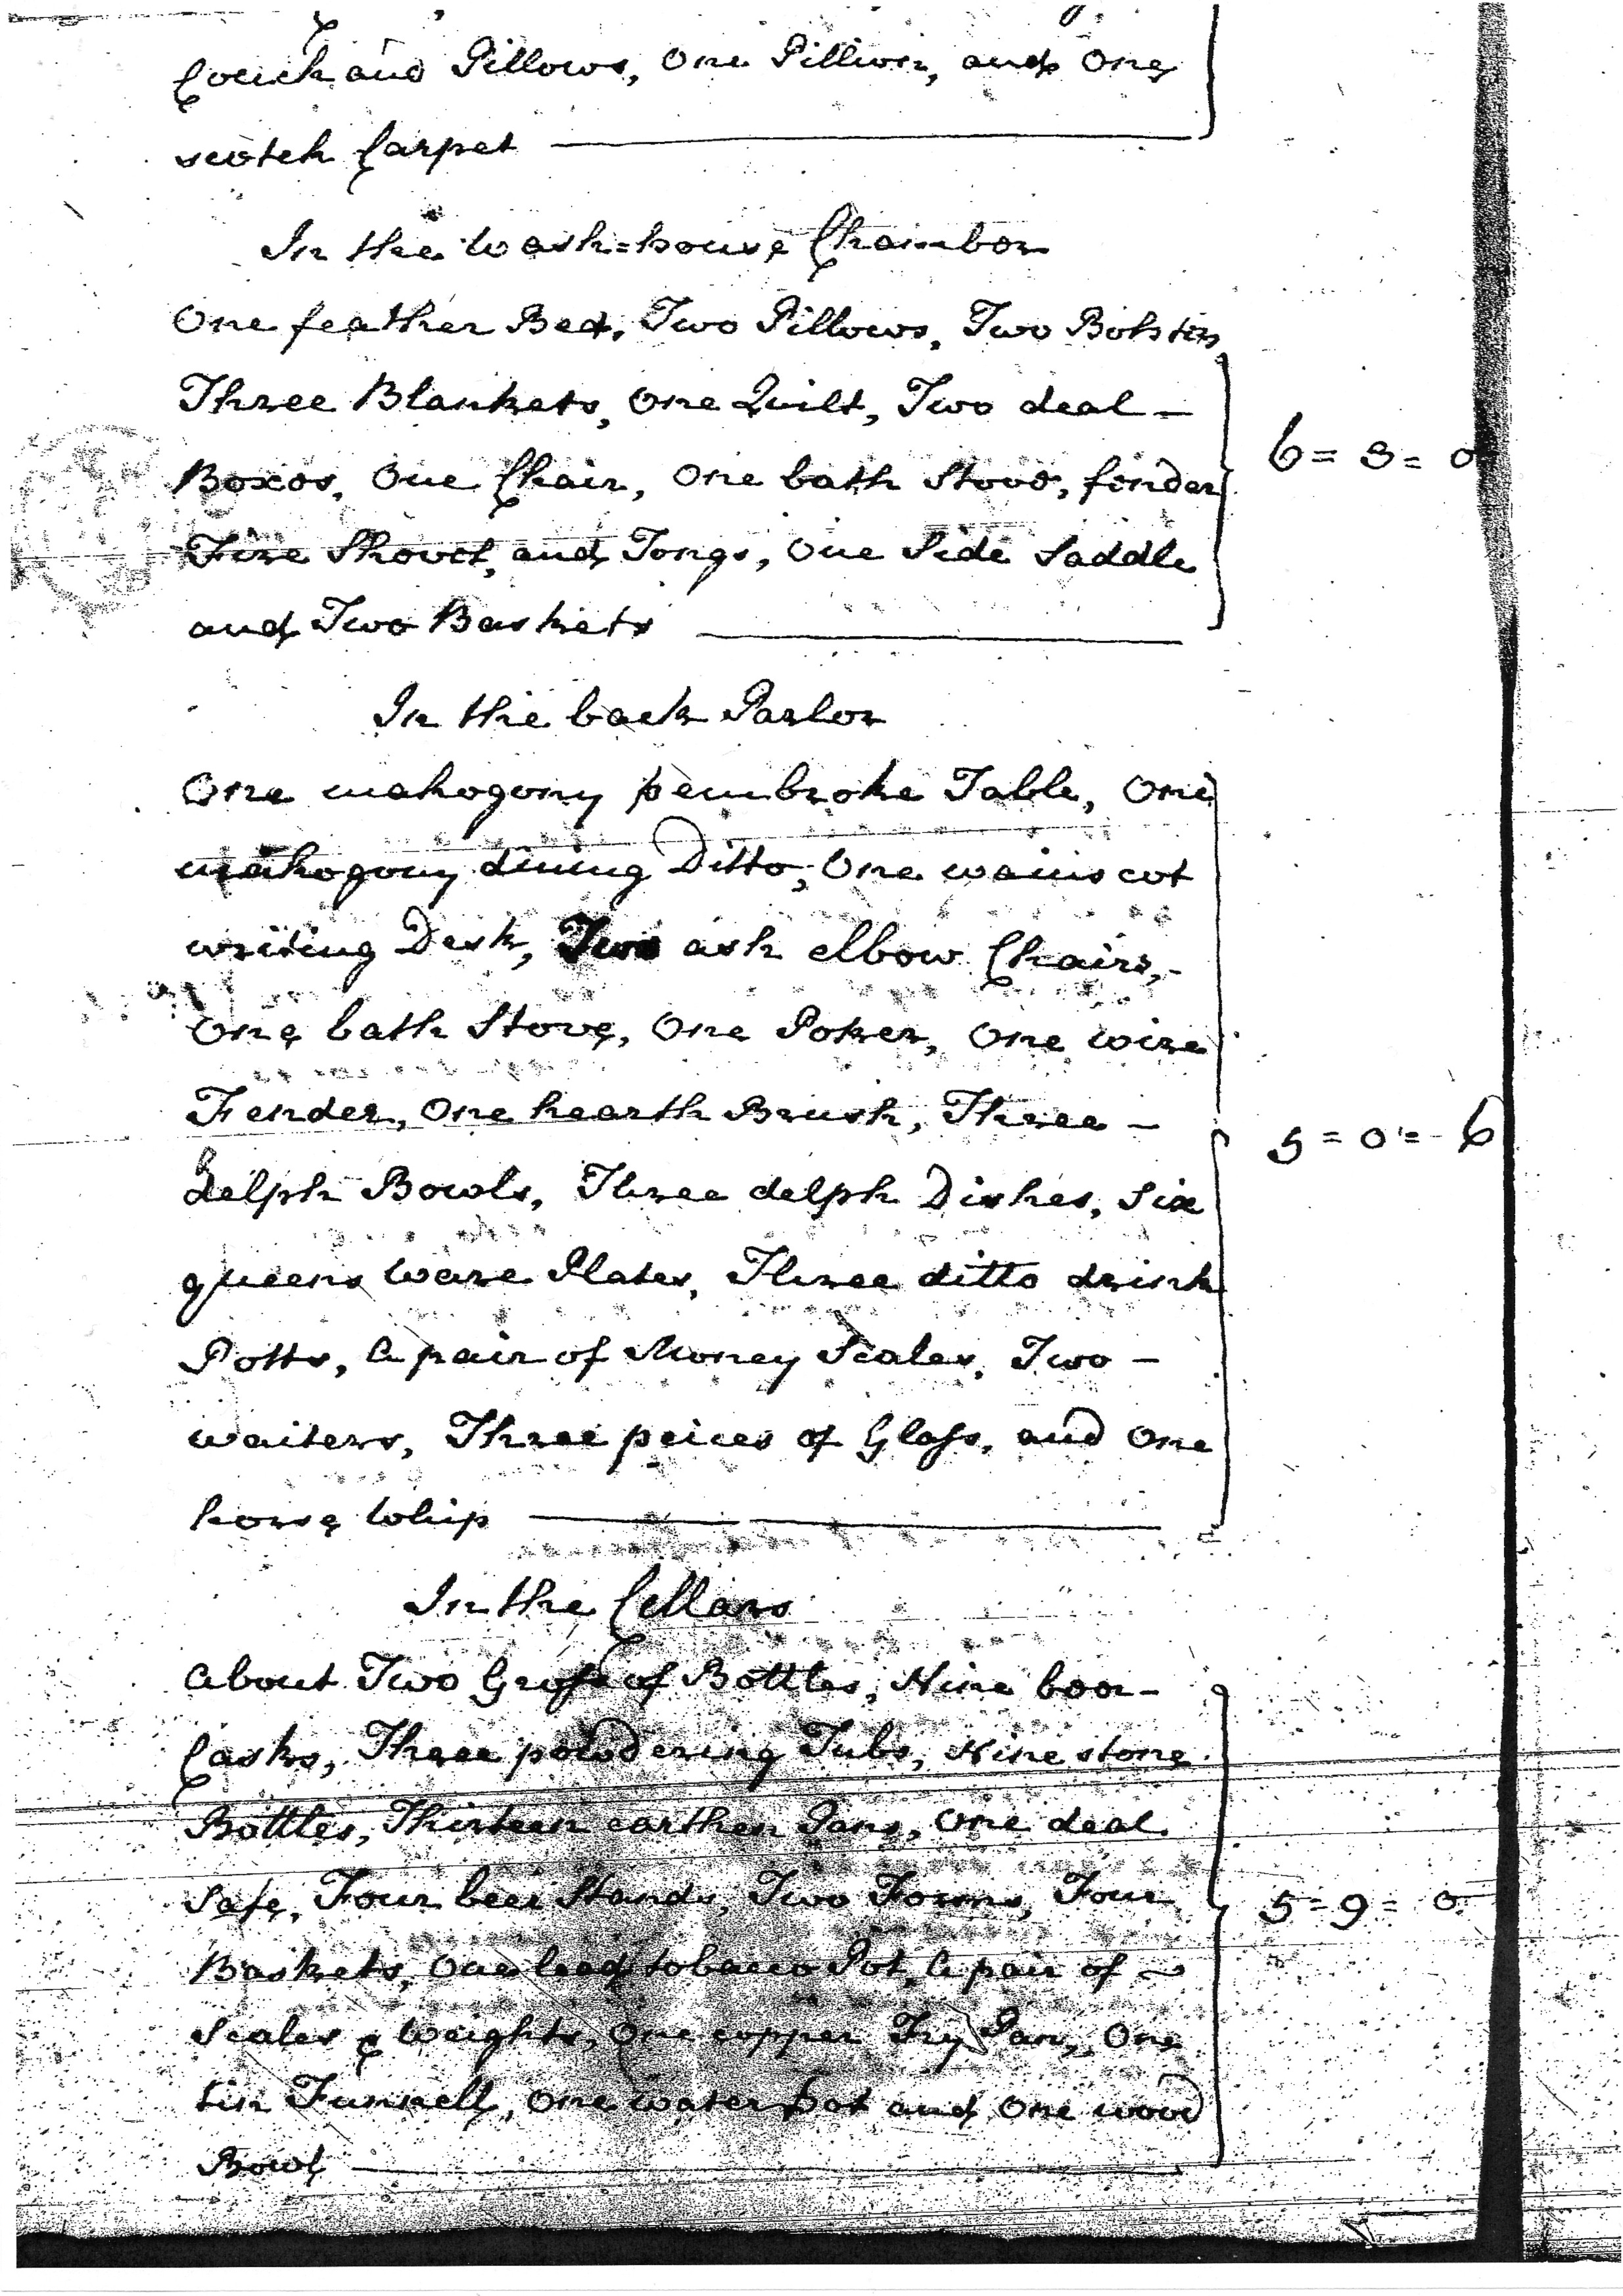 Couch and Pillows, One Pillion, and One
scotch Carpet
In the Wash=house Chamber
One feather Bed, Two Pillows, Two Bolsters
Three Blankets, One Quilt, Two deal —
Boxes, One Chair, One bath Stove, fender
Fire Shovel, and Tongs, One Side Saddle
and Two Baskets
6 = 3 = 0
In the back Parlor
One mahogony pembroke Table, One
mahogony dining Ditto, One wainscot
writing Desk, Two ash elbow Chairs, -
One bath Stove, One Poker, One wire
Fender, One hearth Brush, Three —
delph Bowls, Three delph Dishes, Six
queens Ware Plates, Three ditto drink
Potts, A pair of Money Scales, Two —
waiters, Three peices of Glass, and One
horse Whip
5 = 0 = 6
In the Cellars
About Two Gross of Bottles, Nine beer —
Casks, Three powdering Tubs, Nine stone
Bottles, Thirteen earthen Pans, One deal
Safe, Four beer Stands, Two Forms, Four
Baskets, One lead tobacco Pot, A pair of
Scales & Weights, One copper Fry Pan, One
tin Funnell, One Water Pot and One wood
Bowl
5 = 9 = 0